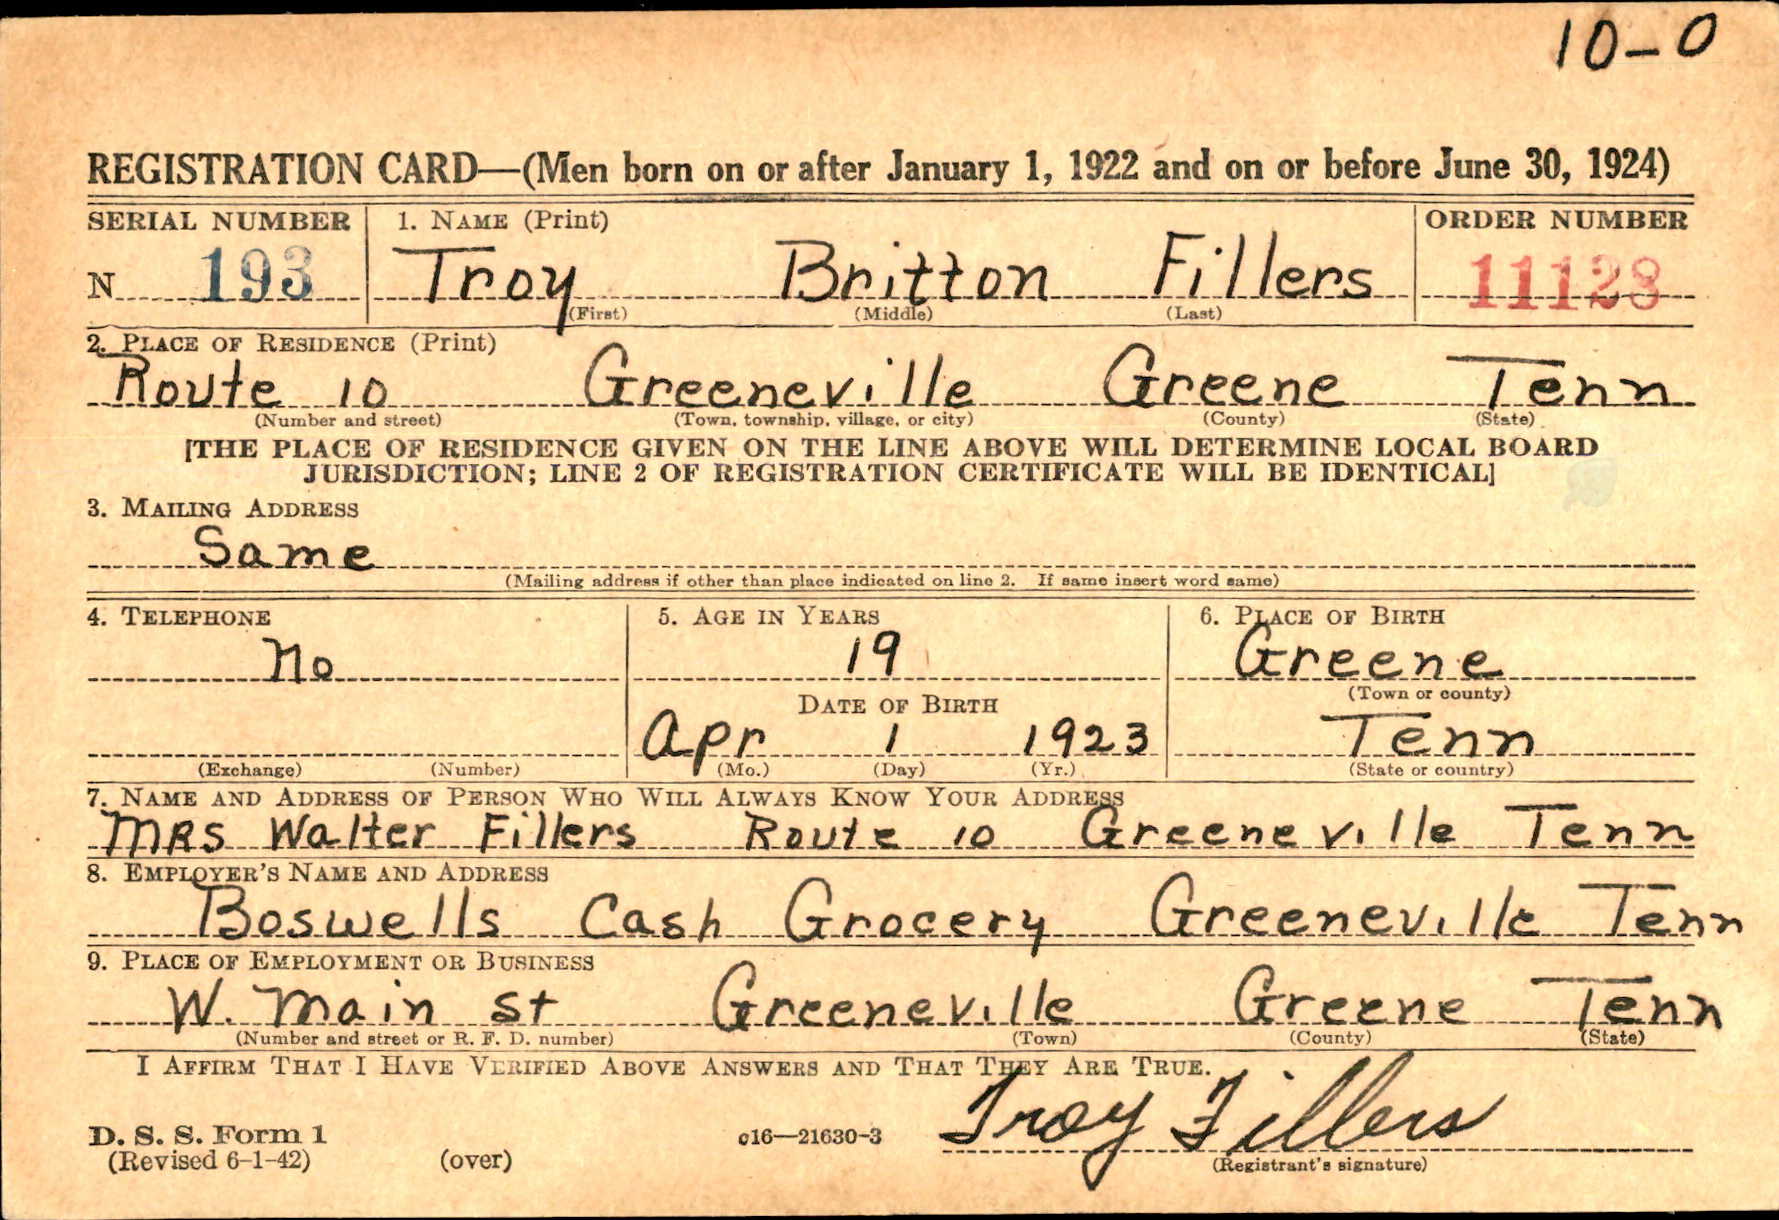 10-0
REGISTRATION CARD—(Men born on or after January 1, 1922 and on or before June 30, 1924)
SERIAL NUMBER 1. NAME (Print) ORDER NUMBER
N 193 Troy Britton Fillers 11128
(First) (Middle) (Last)
2. PLACE OF RESIDENCE (Print)
Route 10 Greeneville Greene Tenn
(Number and street) (Town, township, village, or city) (County) (State)
[THE PLACE OF RESIDENCE GIVEN ON THE LINE ABOVE WILL DETERMINE LOCAL BOARD
JURISDICTION; LINE 2 OF REGISTRATION CERTIFICATE WILL BE IDENTICAL]
3. MAILING ADDRESS
Same
(Mailing address if other than place indicated on line 2. If same insert word same)
4. TELEPHONE 5. AGE IN YEARS 6. PLACE OF BIRTH
No 19 Greene
(Town or county)
DATE OF BIRTH
Apr 1 1923 Tenn
(Exchange) (Number) (Mo.) (Day) (Yr.) (State or country)
7. NAME AND ADDRESS OF PERSON WHO WILL ALWAYS KNOW YOUR ADDRESS
MRS Walter Fillers Route 10 Greeneville Tenn
8. EMPLOYER'S NAME AND ADDRESS
Boswells Cash Grocery Greeneville Tenn
9. PLACE OF EMPLOYMENT OR BUSINESS
W. Main St Greeneville Greene Tenn
(Number and street or R. F. D. number) (Town) (County) (State)
I AFFIRM THAT I HAVE VERIFIED ABOVE ANSWERS AND THAT THEY ARE TRUE.
Troy Fillers
D. S. S. Form 1 c16—21630-3
(Revised 6-1-42) (over) (Registrant's signature)